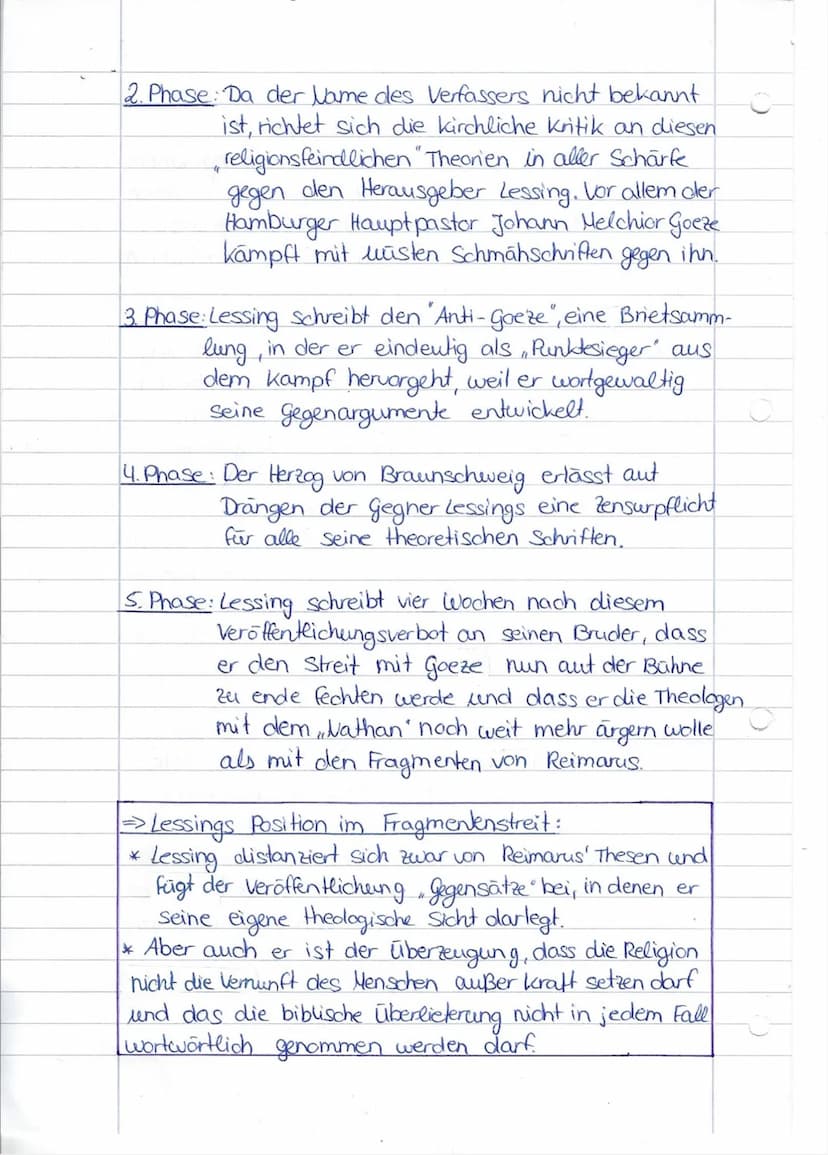 2. Phase: Da der Name des Verfassers nicht bekannt
ist, richtet sich die kirchliche Kritik an diesen
„religionsfeindlichen" Theorien in aller Schärfe
gegen den Herausgeber Lessing. Vor allem der
Hamburger Hauptpastor Johann Melchior Goeze
kämpft mit wüsten Schmähschriften gegen ihn.
3. Phase: Lessing schreibt den "Anti-Goeze", eine Briefsamm-
lung, in der er eindeutig als „Punktesieger" aus
dem Kampf hervorgeht, weil er wortgewaltig
seine Gegenargumente entwickelt.
4. Phase: Der Herzog von Braunschweig erlässt auf
Drängen der Gegner Lessings eine Zensurpflicht
für alle seine theoretischen Schriften.
5. Phase: Lessing schreibt vier Wochen nach diesem
Veröffentlichungsverbot an seinen Bruder, dass
er den Streit mit Goeze nun auf der Bühne
zu ende fechten werde und dass er die Theologen
mit dem „Nathan" noch weit mehr ärgern wolle
als mit den Fragmenten von Reimarus.
⇒ Lessings Position im Fragmentenstreit:
* Lessing distanziert sich zwar von Reimarus' Thesen und
fügt der Veröffentlichung „Gegensätze" bei, in denen er
seine eigene theologische Sicht darlegt.
* Aber auch er ist der Überzeugung, dass die Religion
nicht die Vernunft des Menschen außer Kraft setzen darf
und das die biblische Überlieferung nicht in jedem Fall
wortwörtlich genommen werden darf.